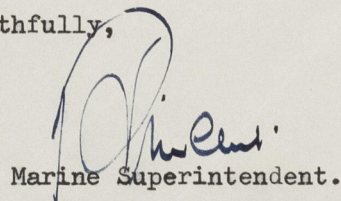 thfully,
Marine Superintendent.